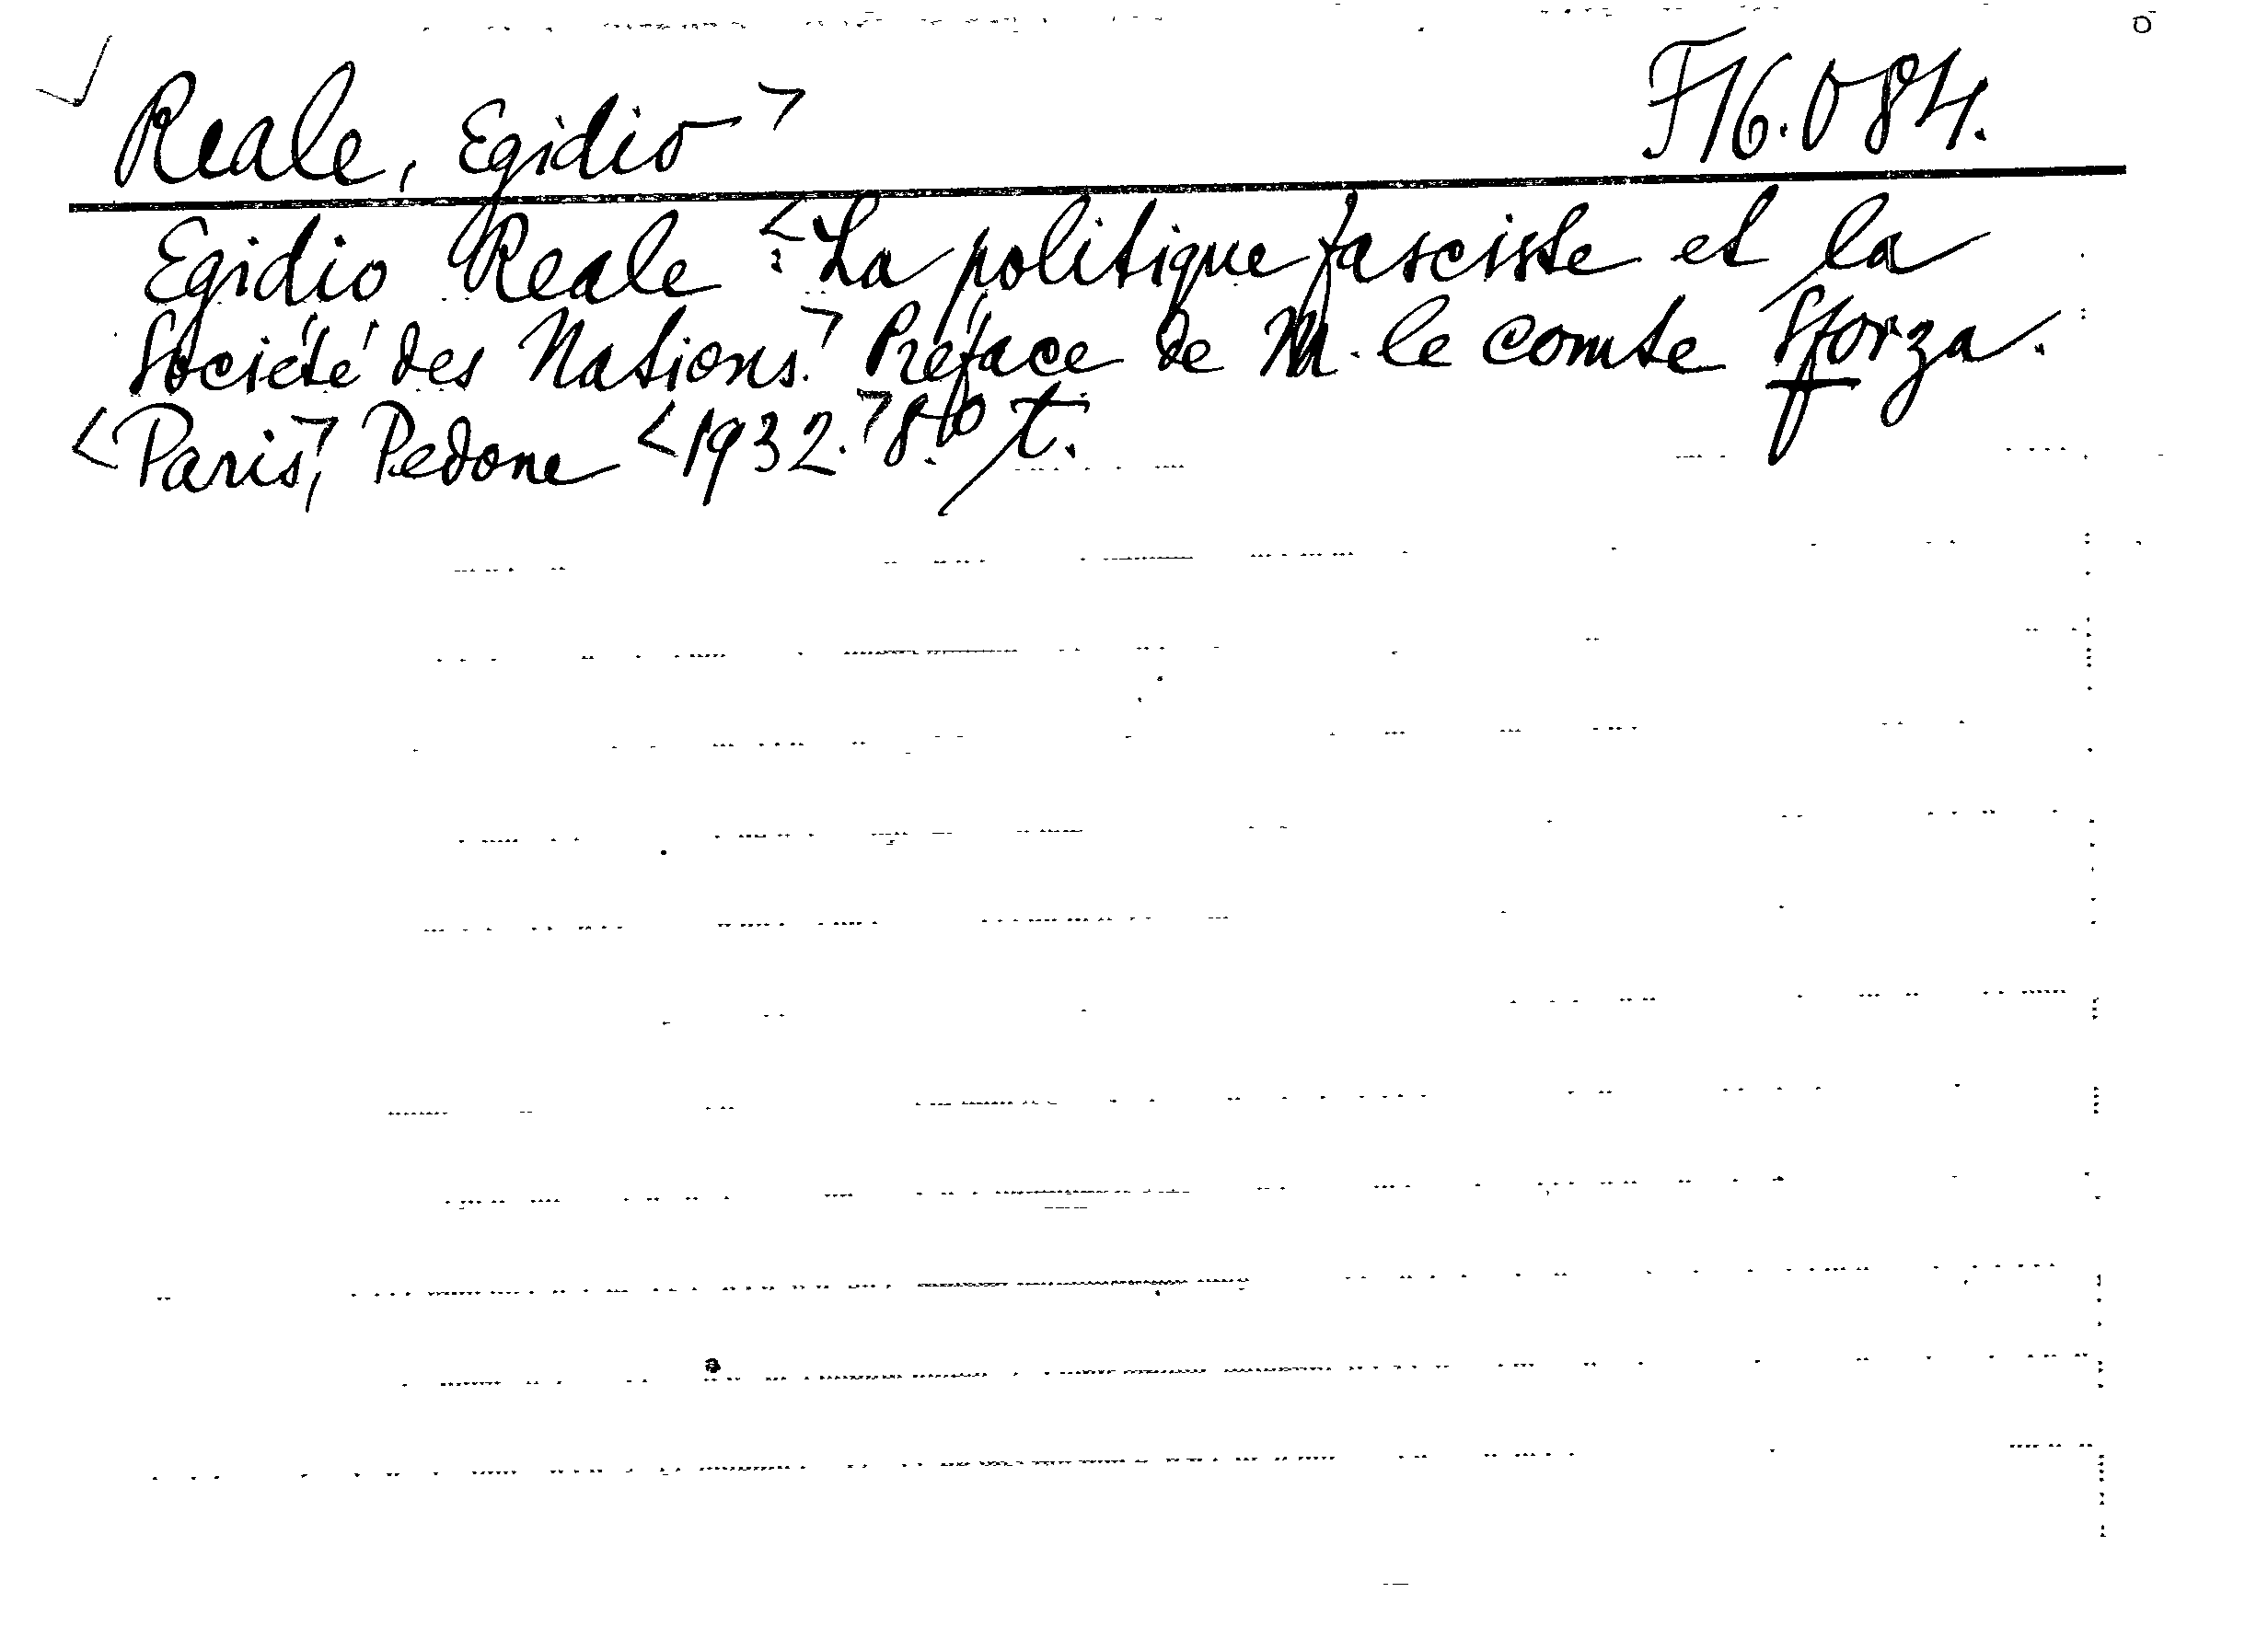 Reale, Egidio> F16.084.
Egidio Reale: <La politique fasciste et la
Société des Nations.> Préface de M. le comte Sforza.
<Paris,> Pedone <1932.> 8.° t.